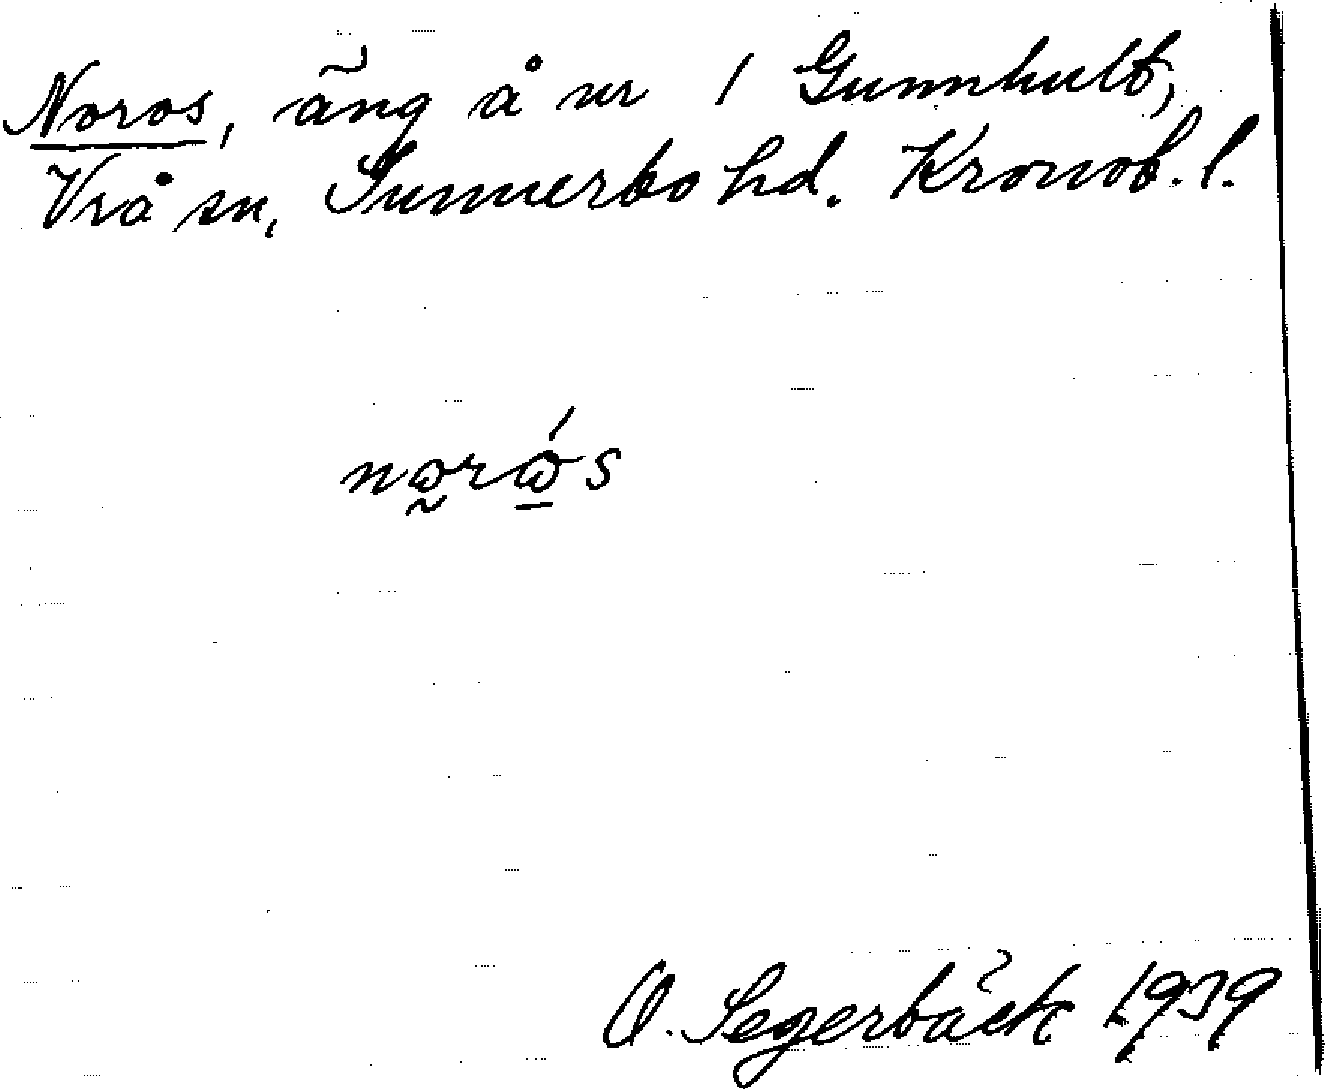 Noros, äng å nr 1 Gunnhult,
Vrå sn, Sunnerbo hd. Kronob. l.
nω̰rώ̱s
O. Segerbäck 1939